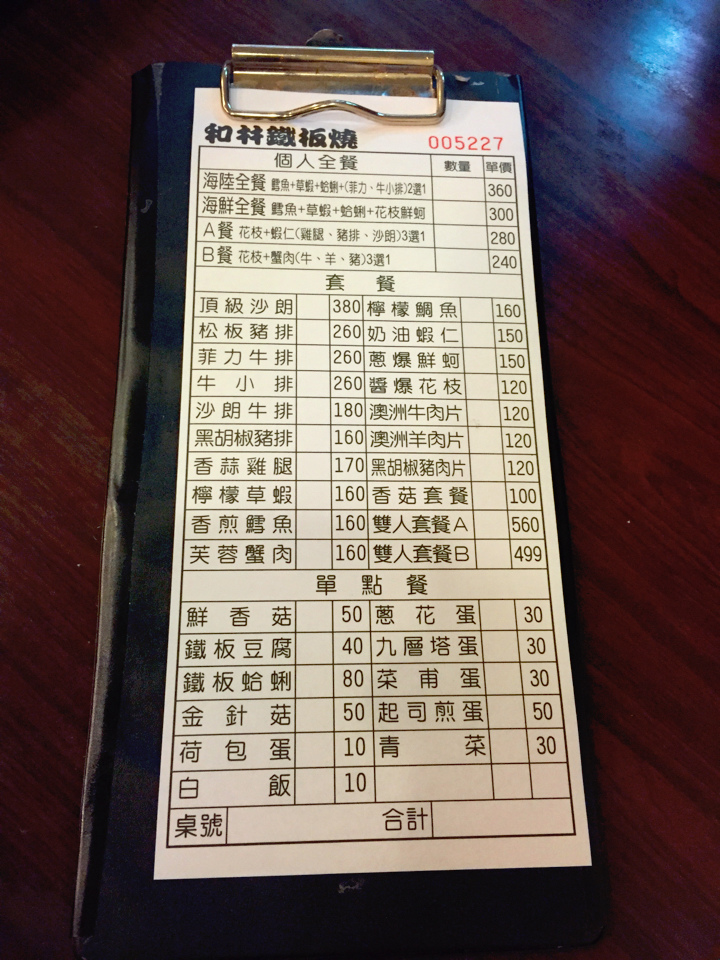 和井鐵板燒 005227
個人全餐 數量 單價
海陸全餐 鱈魚+草蝦+蛤蜊+(菲力、牛小排)2選1 360
海鮮全餐 鱈魚+草蝦+蛤蜊+花枝鮮蚵 300
A餐 花枝+蝦仁(雞腿、豬排、沙朗)3選1 280
B餐 花枝+蟹肉(牛、羊、豬)3選1 240
套餐
頂級沙朗 380 檸檬鯛魚 160
松板豬排 260 奶油蝦仁 150
菲力牛排 260 蔥爆鮮蚵 150
牛小排 260 醬爆花枝 120
沙朗牛排 180 澳洲牛肉片 120
黑胡椒豬排 160 澳洲羊肉片 120
香蒜雞腿 170 黑胡椒豬肉片 120
檸檬草蝦 160 香菇套餐 100
香煎鱈魚 160 雙人套餐A 560
芙蓉蟹肉 160 雙人套餐B 499
單點餐
鮮香菇 50 蔥花蛋 30
鐵板豆腐 40 九層塔蛋 30
鐵板蛤蜊 80 菜甫蛋 30
金針菇 50 起司煎蛋 50
荷包蛋 10 青菜 30
白飯 10
桌號 合計